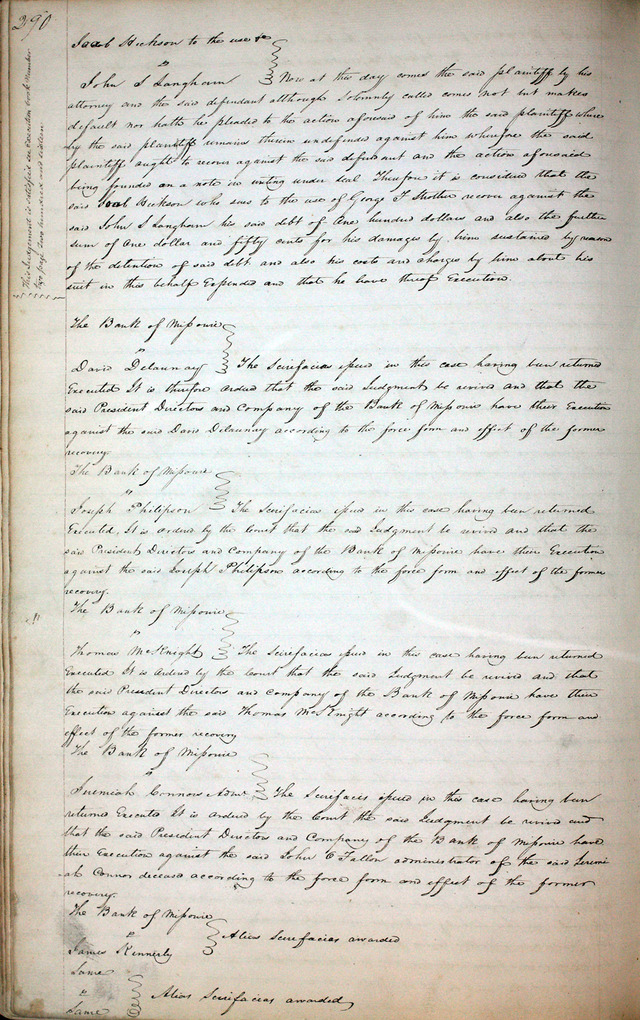 290
Jacob Hickson to the use &c
"
John S Langhorn Now at this day comes the said plaintiff by his
attorney and the said defendant although solemnly called comes not but makes
default nor hath he pleaded to the action aforesaid of him the said plaintiff where
by the said plaintiff remains therein undefended against him wherefore the said
plaintiff aught to recover against the said defendant and the action aforesaid
being founded on a note in writing under seal Therefore it is considered that the
said Jacob Hickson who sues to the use of George F Strother recover against the
said John S Langhorn his said debt of One hundred dollars and also the further
sum of One dollar and fifty cents for his damages by him sustained by reason
of the detention of said debt and also his costs and charges by him about his
suit in this behalf Expended and that he have thereof Execution.
This Judgment is satisfied see execution book number
two page two hundred and sixteen
The Bank of Missouri
"
David Delaunay The Scirefacias issued in this case having been returned
Executed It is therefore ordered that the said Judgment be revived and that the
said President Directors and Company of the Bank of Missouri have their Execution
against the said David Delaunay according to the force form and effect of the former
recovery.
The Bank of Missouri
"
Joseph Philipson The Scirefacias issued in this case having been returned
Executed, It is ordered by the Court that the said Judgment be revived and that the
said President Directors and Company of the Bank of Missouri have their Execution
against the said Joseph Philipson according to the force form and effect of the former
recovery.
The Bank of Missouri
"
Thomas McKnight The Scirefacias issued in this case having been returned
Executed It is ordered by the Court that the said Judgment be revived and that
the said President Directors and Company of the Bank of Missouri have their
Execution against the said Thomas McKnight according to the force form and
effect of the former recovery
The Bank of Missouri
"
Jeremiah Connor Admr The Scirefacias issued in this case having been
returned Executed It is ordered by the Court the said Judgment be revived and
that the said President Directors and Company of the Bank of Missouri have
their Execution against the said John O Fallon administrator of the said Jeremi-
ah Connor deceased according to the force form and effect of the former
recovery.
The Bank of Missouri
" Alias Scirefacias awarded
James Kennerly
Same
" Alias Scirefacias awarded
Same